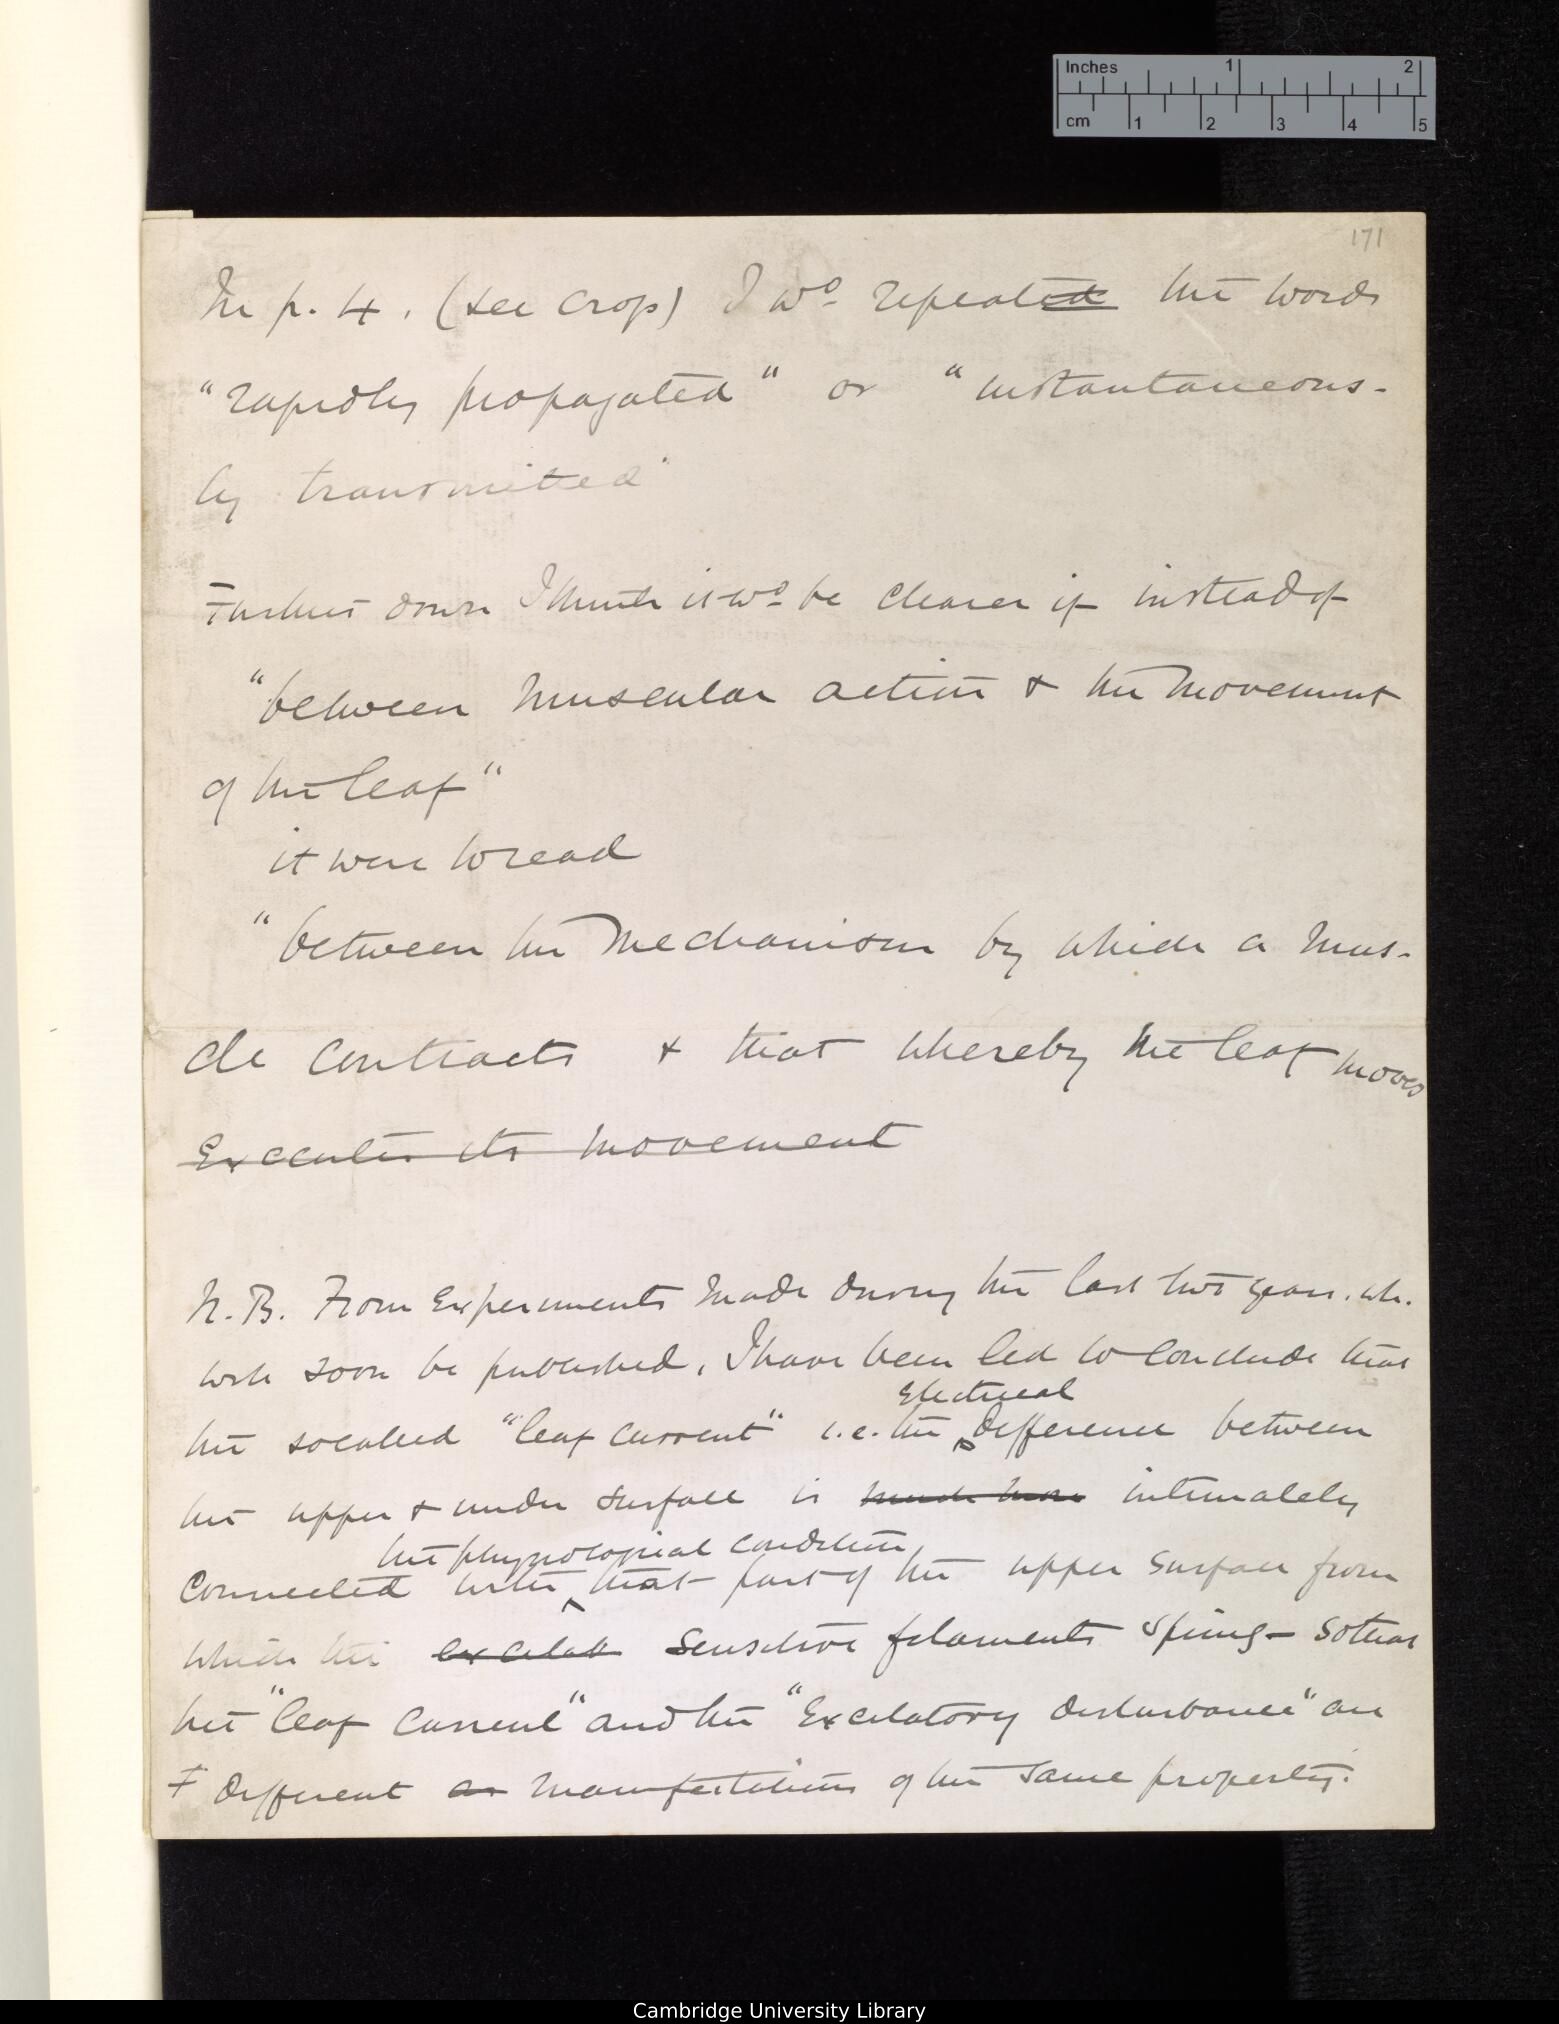 Inches 1 2
cm 1 2 3 4 5
171
In p. 4. (see cross) I wd. repeated the words
"rapidly propagated" or "instantaneous-
ly transmitted"
Further down I think it wd. be clearer if instead of
"between muscular action & the movement
of the leaf"
it were to read
"between the mechanism by which a mus-
cle contracts & that whereby the leaf moves
Executes its movement
N.B. From Experiments made during the last two years. wh.
will soon be published, I have been led to conclude that
Electrical
the socalled "leaf current" i.e. the difference between
the upper & under surface is much more intimately
the physiological condition
connected with that part of the upper surface from
which the excitab sensitive filaments spring - so that
the "leaf current" and the "Excitatory disturbance" are
different as manifestations of the same property.
Cambridge University Library